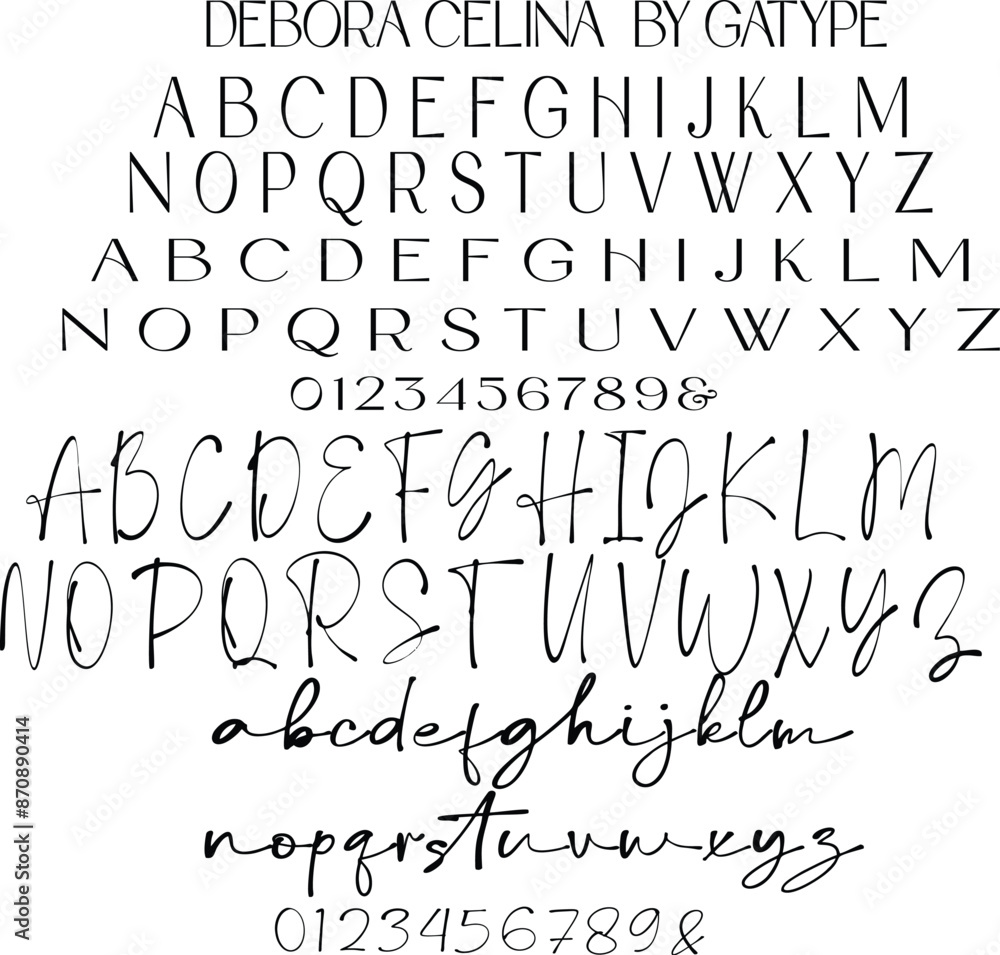 DEBORA CELINA BY GATYPE
A B C D E F G H I J K L M
N O P Q R S T U V W X Y Z
A B C D E F G H I J K L M
N O P Q R S T U V W X Y Z
0123456789&
A B C D E F G H I J K L M
N O P Q R S T U V W X Y Z
abcdefghijklm
nopqrstuvwxyz
0123456789&
Adobe Stock | #870890414